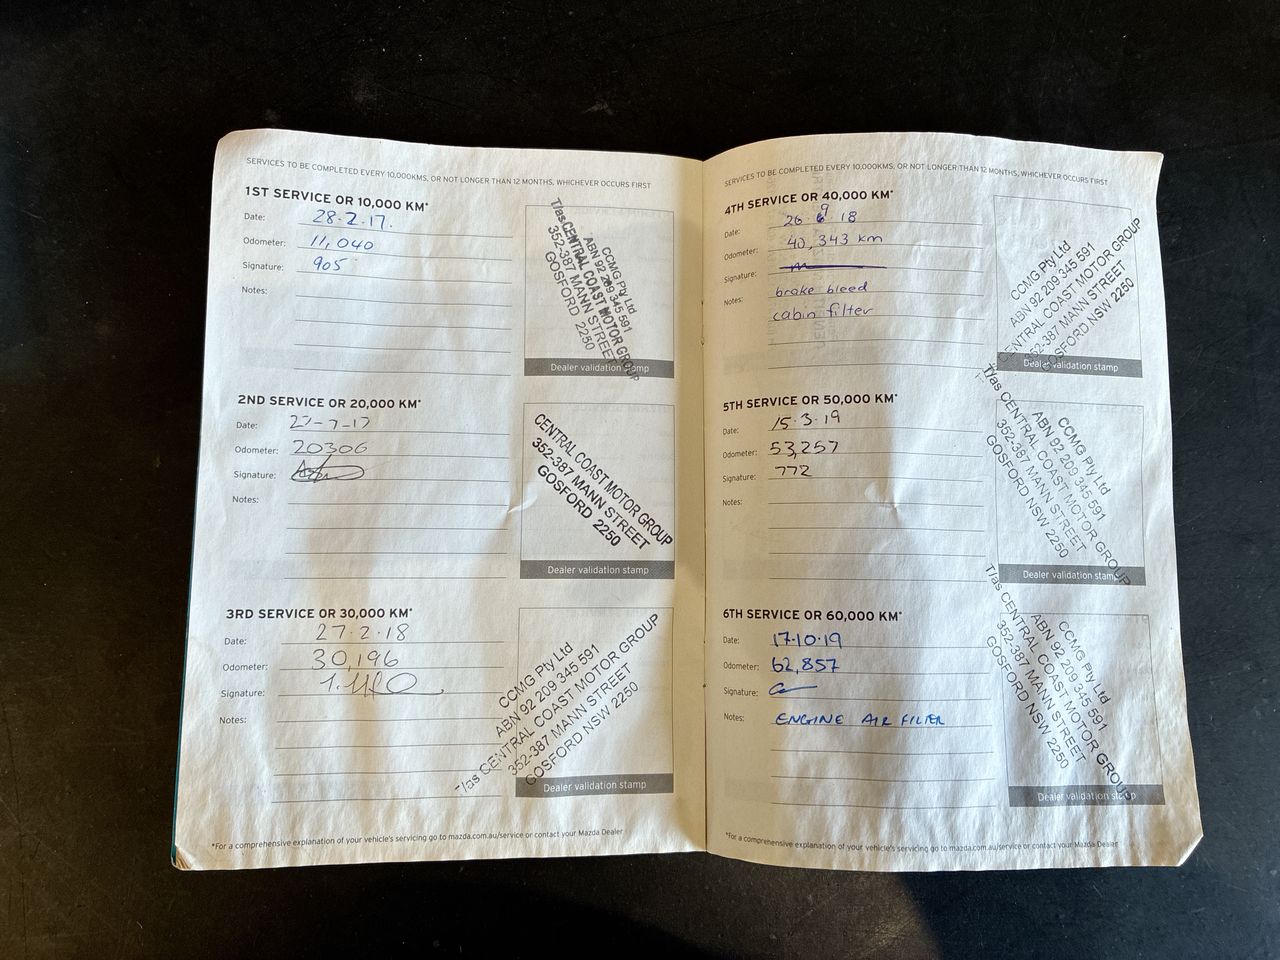 SERVICES TO BE COMPLETED EVERY 10,000KMS, OR NOT LONGER THAN 12 MONTHS, WHICHEVER OCCURS FIRST
1ST SERVICE OR 10,000 KM*
Date: 28.2.17.
Odometer: 11,040
Signature: 905
Notes:
CCMG Pty Ltd
ABN 92 209 345 591
T/as CENTRAL COAST MOTOR GROUP
352-387 MANN STREET
GOSFORD 2250
Dealer validation stamp
2ND SERVICE OR 20,000 KM*
Date: 27-7-17
Odometer: 20306
Signature:
Notes:
CENTRAL COAST MOTOR GROUP
352-387 MANN STREET
GOSFORD 2250
Dealer validation stamp
3RD SERVICE OR 30,000 KM*
Date: 27.2.18
Odometer: 30,196
Signature:
Notes:
CCMG Pty Ltd
ABN 92 209 345 591
T/as CENTRAL COAST MOTOR GROUP
352-387 MANN STREET
GOSFORD NSW 2250
Dealer validation stamp
*For a comprehensive explanation of your vehicle's servicing go to mazda.com.au/service or contact your Mazda Dealer
SERVICES TO BE COMPLETED EVERY 10,000KMS, OR NOT LONGER THAN 12 MONTHS, WHICHEVER OCCURS FIRST
4TH SERVICE OR 40,000 KM*
Date: 26.9.18
Odometer: 40,343 km
Signature:
Notes: brake bleed
cabin filter
CCMG Pty Ltd
ABN 92 209 345 591
CENTRAL COAST MOTOR GROUP
352-387 MANN STREET
GOSFORD NSW 2250
Dealer validation stamp
5TH SERVICE OR 50,000 KM*
Date: 15.3.19
Odometer: 53,257
Signature: 772
Notes:
CCMG Pty Ltd
ABN 92 209 345 591
T/as CENTRAL COAST MOTOR GROUP
352-387 MANN STREET
GOSFORD NSW 2250
Dealer validation stamp
6TH SERVICE OR 60,000 KM*
Date: 17.10.19
Odometer: 62,857
Signature:
Notes: ENGINE AIR FILTER
CCMG Pty Ltd
ABN 92 209 345 591
T/as CENTRAL COAST MOTOR GROUP
352-387 MANN STREET
GOSFORD NSW 2250
Dealer validation stamp
*For a comprehensive explanation of your vehicle's servicing go to mazda.com.au/service or contact your Mazda Dealer